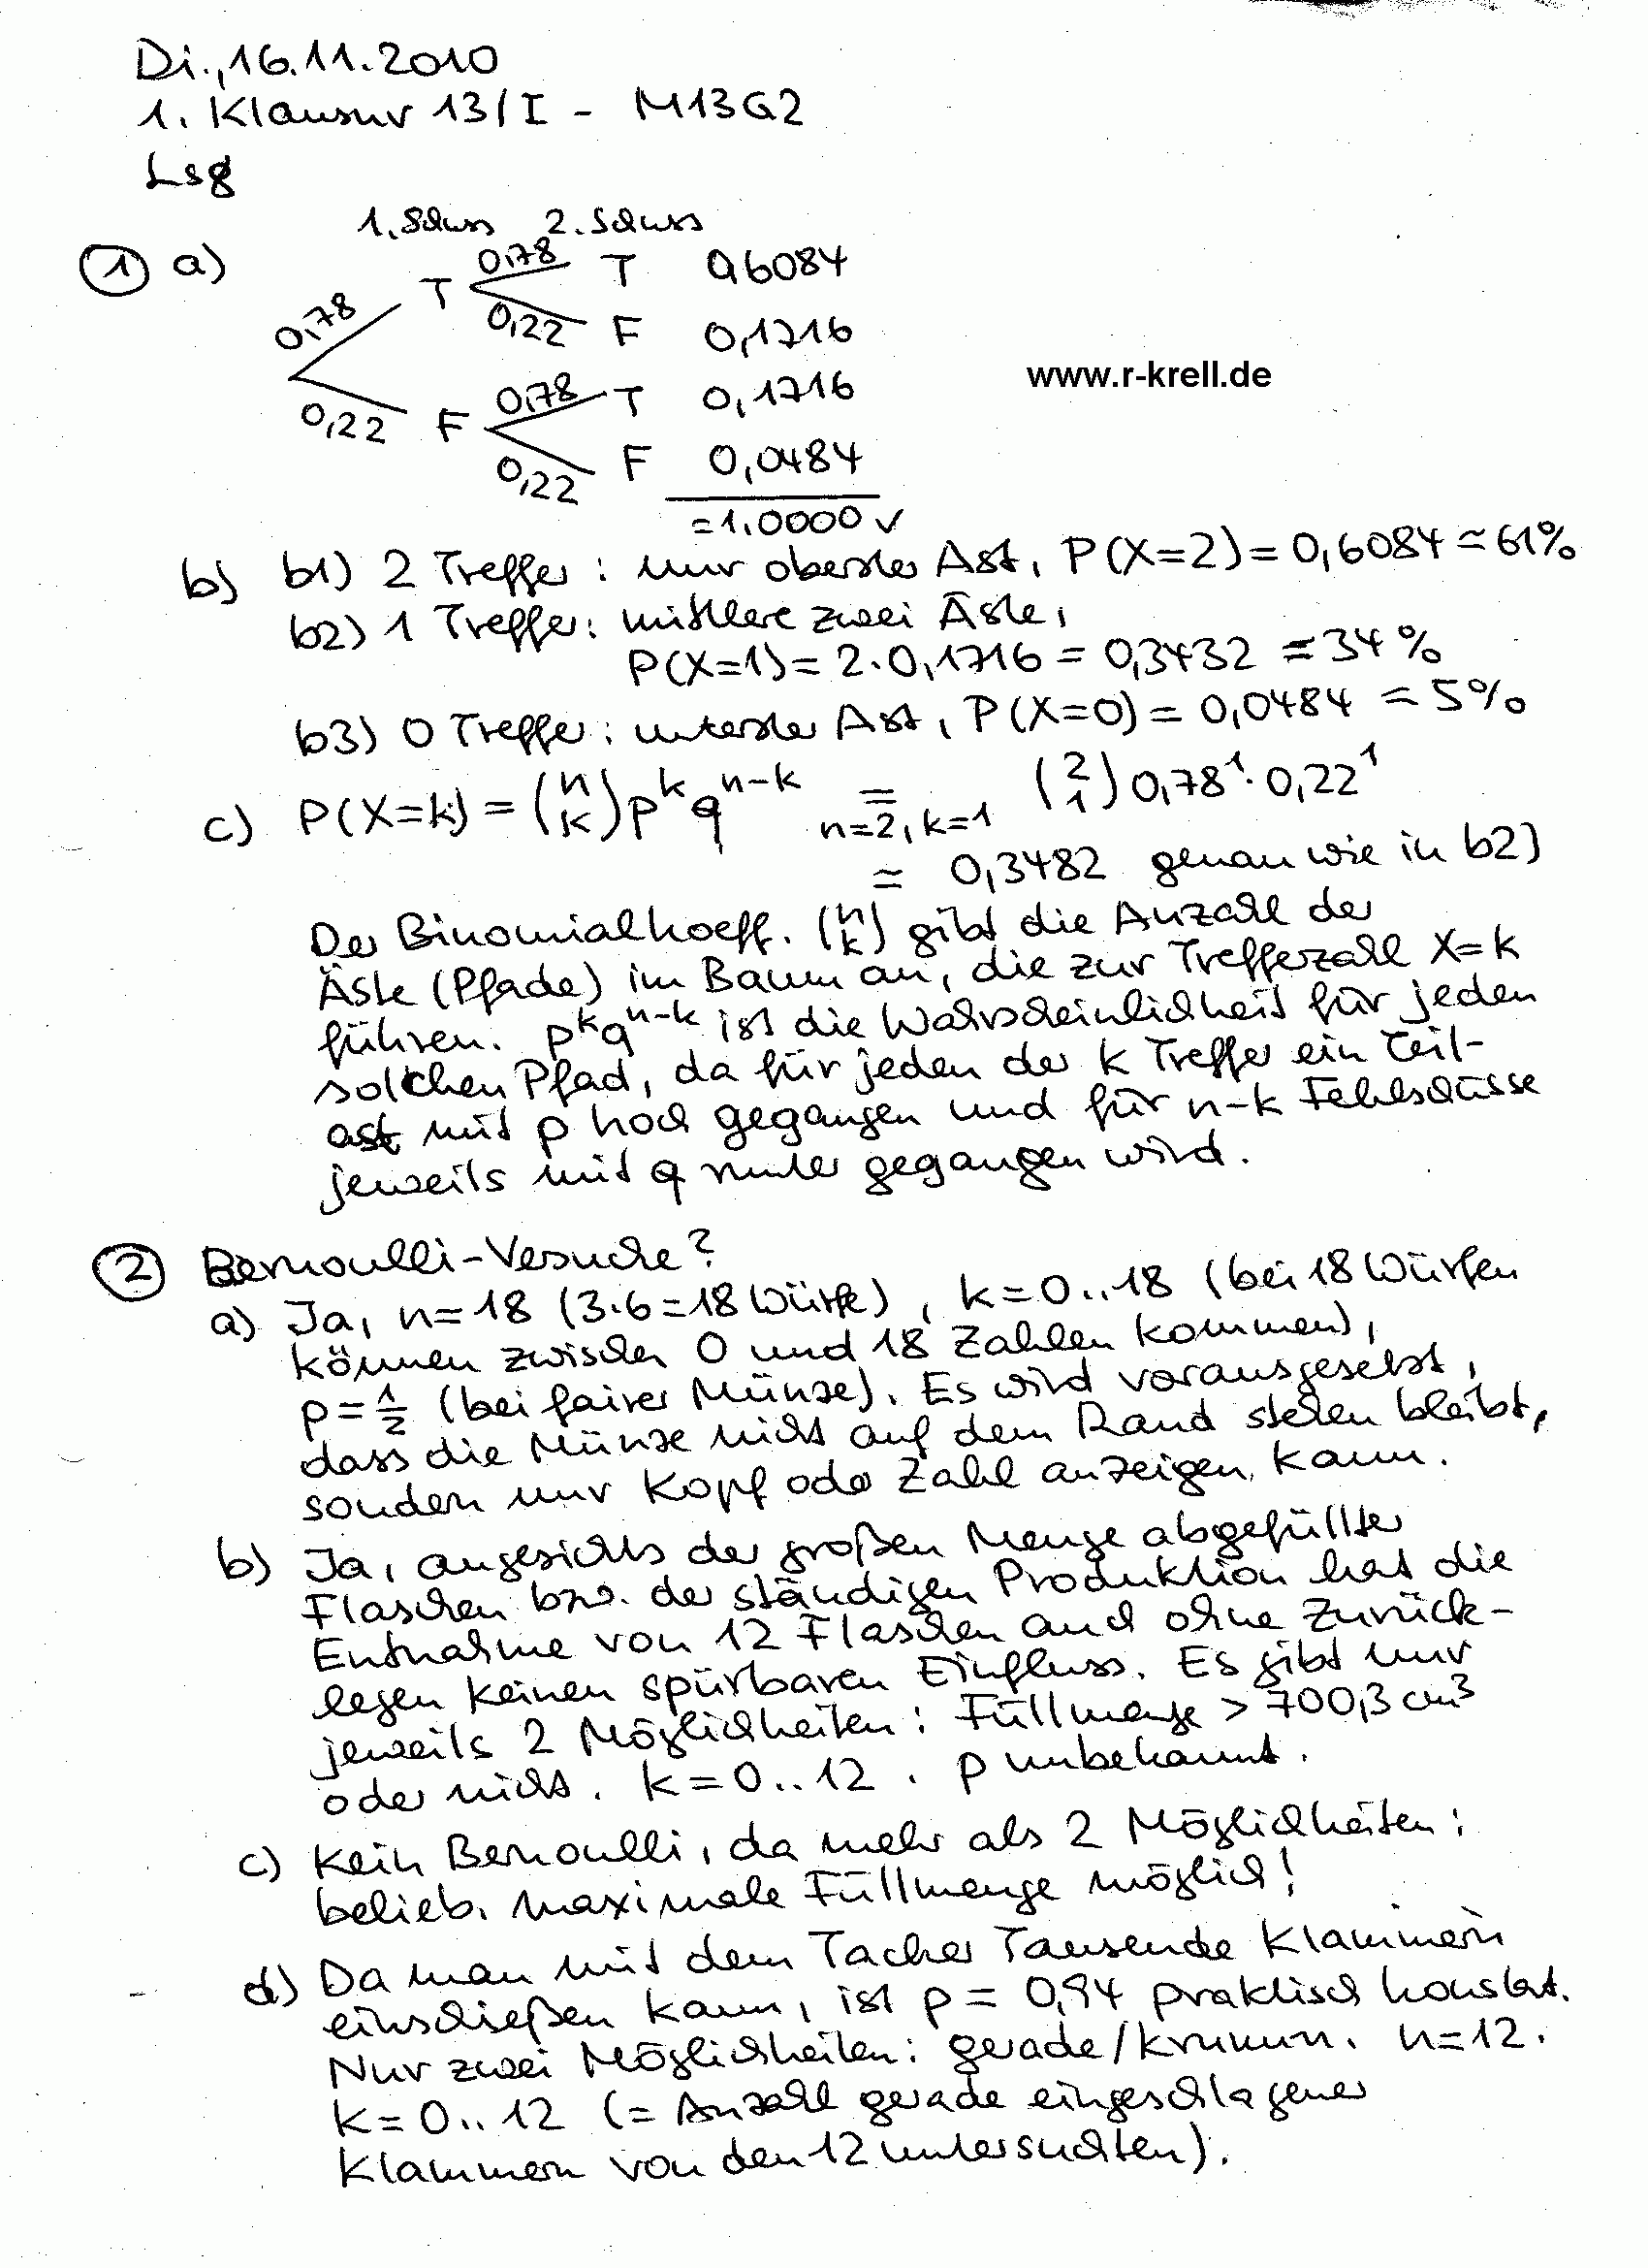 Di., 16.11.2010
1. Klausur 13/I - M13G2
Lsg
1. Schuss 2. Schuss
① a)
0,78 T 0,78 T 0,6084
0,22 F 0,1716
www.r-krell.de
0,22 F 0,78 T 0,1716
0,22 F 0,0484
=1.0000 ✓
b) b1) 2 Treffer: nur oberster Ast, P(X=2)=0,6084≃61%
b2) 1 Treffer: mittlere zwei Äste,
P(X=1)=2·0,1716=0,3432≃34%
b3) 0 Treffer: unterster Ast, P(X=0)=0,0484≃5%
c) P(X=k)=(n k)p^k q^(n-k) = n=2, k=1 (2 1) 0,78^1·0,22^1
= 0,3482 genau wie in b2)
Der Binomialkoeff. (n k) gibt die Anzahl der
Äste (Pfade) im Baum an, die zur Trefferzahl X=k
führen. p^k q^(n-k) ist die Wahrscheinlichkeit für jeden
solchen Pfad, da für jeden der k Treffer ein Teil-
ast mit p hoch gegangen und für n-k Fehlschüsse
jeweils mit q runter gegangen wird.
② Bernoulli-Versuche?
a) Ja, n=18 (3·6=18 Würfe), k=0..18 (bei 18 Würfen
können zwischen 0 und 18 Zahlen kommen),
p=1/2 (bei fairer Münze). Es wird vorausgesetzt,
dass die Münze nicht auf dem Rand stehen bleibt,
sondern nur Kopf oder Zahl anzeigen kann.
b) Ja, angesichts der großen Menge abgefüllter
Flaschen bzw. der ständigen Produktion hat die
Entnahme von 12 Flaschen auch ohne Zurück-
legen keinen spürbaren Einfluss. Es gibt nur
jeweils 2 Möglichkeiten: Füllmenge > 700,3 cm³
oder nicht. k=0..12. p unbekannt.
c) Kein Bernoulli, da mehr als 2 Möglichkeiten:
belieb. maximale Füllmenge möglich!
d) Da man mit dem Tacker Tausende Klammern
einschießen kann, ist p=0,94 praktisch konstant.
Nur zwei Möglichkeiten: gerade/krumm. n=12.
k=0..12 (= Anzahl gerade eingeschlagener
Klammern von den 12 untersuchten).